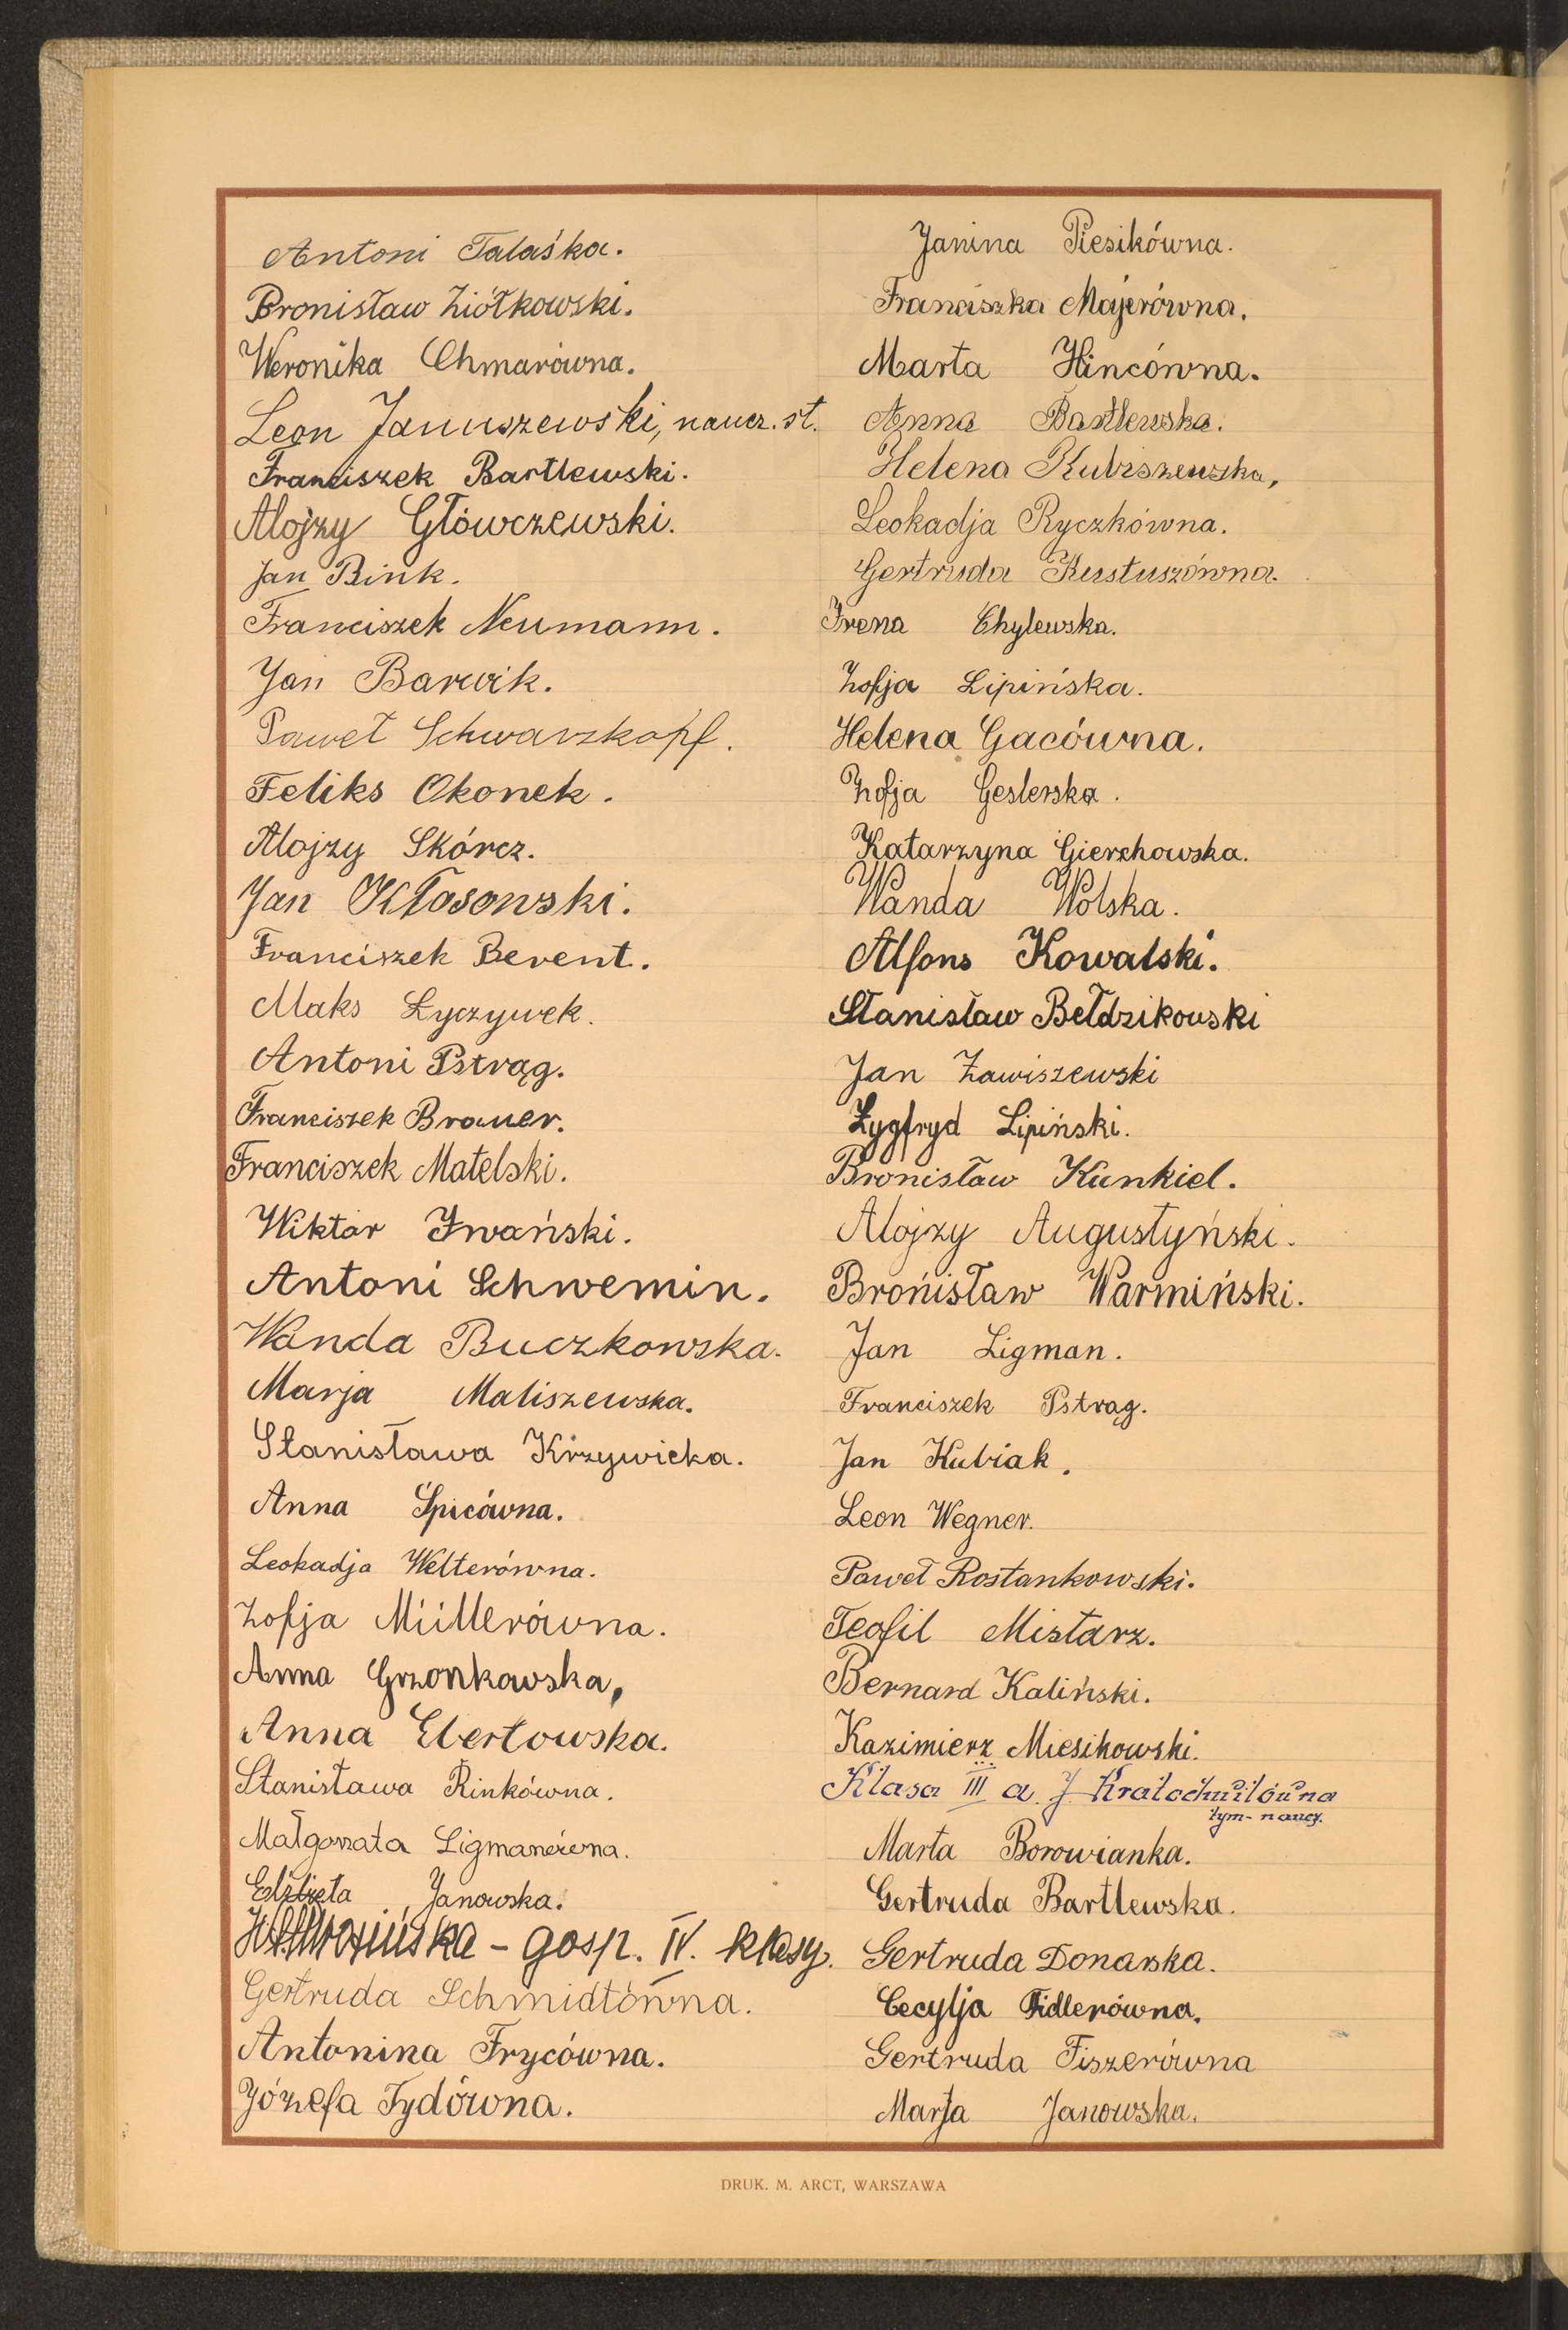 Antoni Talaśka.
Bronisław Ziółkowski.
Weronika Chmarówna.
Leon Januszewski, naucz. st.
Franciszek Bartlewski.
Alojzy Główczewski.
Jan Bink.
Franciszek Neumann.
Jan Barwik.
Paweł Schwarzkopf.
Feliks Okonek.
Alojzy Skórcz.
Jan Kłosowski.
Franciszek Berent.
Maks Łyczywek.
Antoni Pstrąg.
Franciszek Brauer.
Franciszek Matelski.
Wiktor Iwański.
Antoni Schwemin.
Wanda Buczkowska.
Marja Maliszewska.
Stanisława Krzywicka.
Anna Śpicówna.
Leokadja Welterówna.
Zofja Müllerówna.
Anna Grzonkowska,
Anna Ebertowska.
Stanisława Rinkówna.
Małgorzata Ligmanówna.
Elżbieta Janowska.
- gosp. IV. klasy.
Gertruda Schmidtówna.
Antonina Frycówna.
Józefa Tydówna.
Janina Piesikówna.
Franciszka Majerówna.
Marta Hincówna.
Anna Bartlewska.
Helena Kubiszewska,
Leokadja Ryczkówna.
Gertruda Kustuszówna.
Irena Chylewska.
Zofja Lipińska.
Helena Gacówna.
Zofja Geslerska.
Katarzyna Gierzhowska.
Wanda Wolska.
Alfons Kowalski.
Stanisław Bełdzikowski
Jan Zawiszewski
Zygfryd Lipiński.
Bronisław Kunkiel.
Alojzy Augustyński.
Bronisław Warmiński.
Jan Ligman.
Franciszek Pstrąg.
Jan Kubiak.
Leon Wegner.
Paweł Rostankowski.
Teofil Mistarz.
Bernard Kaliński.
Kazimierz Miesikowski.
Klasa III a. J. Kratochwilówna
tym- naucz.
Marta Borowianka.
Gertruda Bartlewska.
Gertruda Donarska.
Cecylja Fidlerówna.
Gertruda Fiszerówna
Marja Janowska.
DRUK. M. ARCT, WARSZAWA